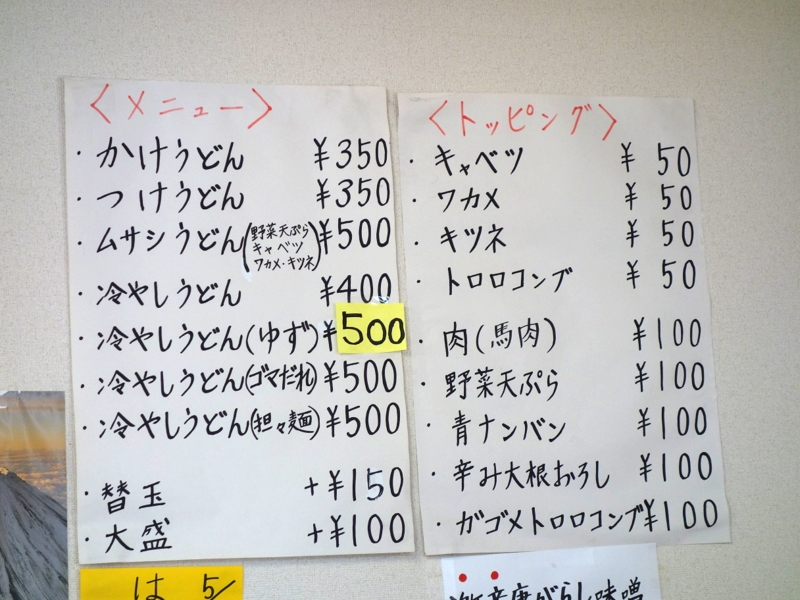 〈メニュー〉
・かけうどん ¥350
・つけうどん ¥350
・ムサシうどん(野菜天ぷら キャベツ ワカメ・キツネ) ¥500
・冷やしうどん ¥400
・冷やしうどん(ゆず) ¥500
・冷やしうどん(ゴマだれ) ¥500
・冷やしうどん(担々麺) ¥500
・替玉 +¥150
・大盛 +¥100
〈トッピング〉
・キャベツ ¥50
・ワカメ ¥50
・キツネ ¥50
・トロロコンブ ¥50
・肉(馬肉) ¥100
・野菜天ぷら ¥100
・青ナンバン ¥100
・辛み大根おろし ¥100
・ガゴメトロロコンブ ¥100
は 5/
唐がらし味噌